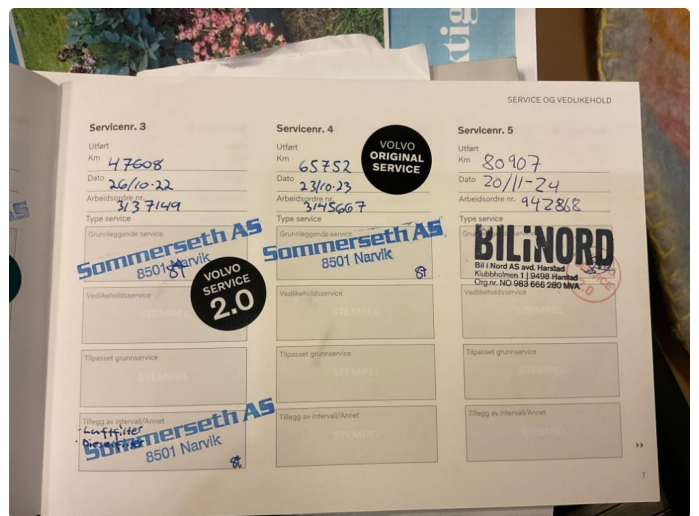 ktig
SERVICE OG VEDLIKEHOLD
Servicenr. 3
Utført
Km 47608
Dato 26/10-22
Arbeidsordre nr. 3137149
Type service
Grunnleggende service
Sommerseth AS
8501 Narvik
VOLVO
SERVICE
2.0
Vedlikeholdsservice
STEMPEL
Tilpasset grunnservice
STEMPEL
Tillegg av intervall/Annet
- Luftfilter
Sommerseth AS
8501 Narvik
Servicenr. 4
VOLVO
ORIGINAL
SERVICE
Utført
Km 65752
Dato 23/10-23
Arbeidsordre nr. 3145667
Type service
Grunnleggende service
Sommerseth AS
8501 Narvik
Vedlikeholdsservice
STEMPEL
Tilpasset grunnservice
STEMPEL
Tillegg av intervall/Annet
STEMPEL
Servicenr. 5
Utført
Km 80907
Dato 20/11-24
Arbeidsordre nr. 942868
Type service
BILiNORD
Bil i Nord AS avd. Harstad
Klubbholmen 1 | 9498 Harstad
Org.nr. NO 983 666 280 MVA
Vedlikeholdsservice
STEMPEL
Tilpasset grunnservice
STEMPEL
Tillegg av intervall/Annet
STEMPEL
7